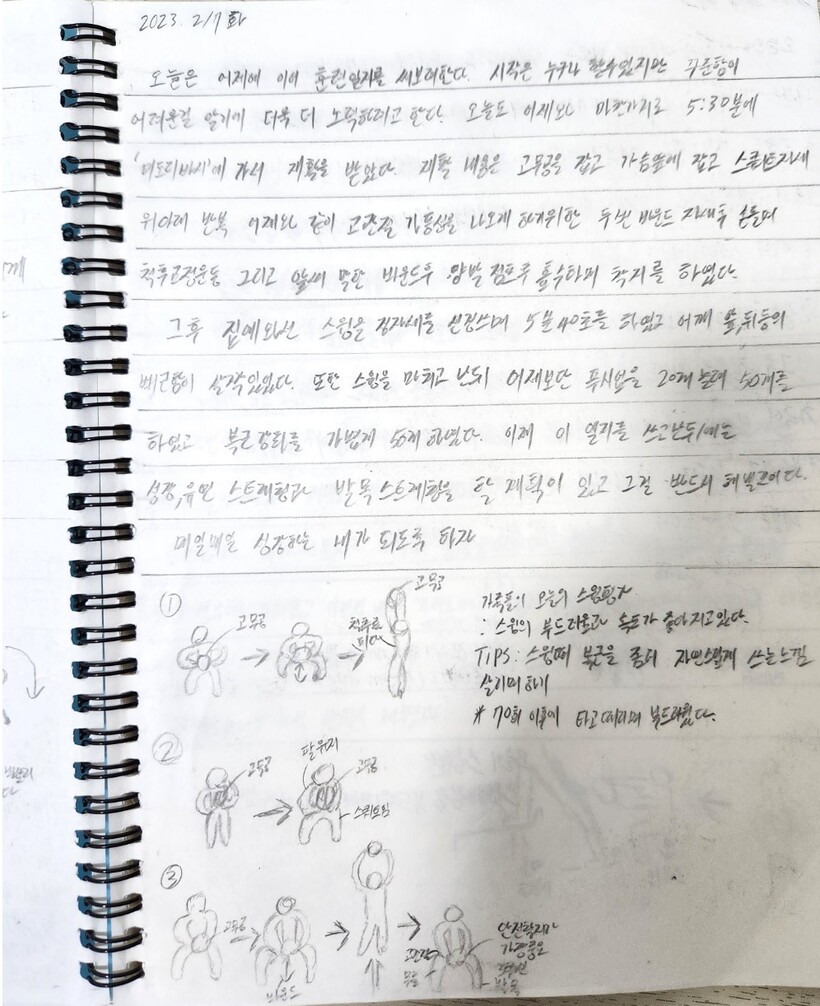 2023. 2/7 화
오늘은 어제에 이어 훈련일지를 써보려한다. 시작은 누구나 할수있지만 꾸준함이
어려운걸 알기에 더욱 더 노력하려고 한다. 오늘도 어제와 마찬가지로 5:30분에
가서 재활을 받았다. 재활 내용은 고무공을 잡고 가슴앞에 잡고 스쿼트자세
위아래 반복 어제와 같이 고관절 가동성을 나오게 하기위한 두번 바운드 자세후 손들며
척추고정운동 그리고 앞에 말한 바운드후 양발 점프후 흡수하며 착지를 하였다.
그후 집에와선 스윙을 집자세를 신경쓰며 5분40초를 하였고 어깨 앞,뒤등의
뻐근함이 살짝있었다. 또한 스윙을 마치고 난뒤 어제보단 푸시업을 20개 늘려 50개를
하였고 복근강화를 가볍게 50개 하였다. 이제 이 일지를 쓰고난뒤에는
성장,유연 스트레칭과 발목스트레칭을 할 계획이 있고 그걸 반드시 해낼것이다.
매일매일 성장하는 내가 되도록 하자
① 고무공 고무공
척추로
오늘의 스윙평가
: 스윙의 부드러움과 속도가 좋아지고있다.
TIPS : 스윙때 복근을 좀더 자연스럽게 쓰는느낌
살리며하기
* 70회 이후에 부드러웠다.
②
고무공 팔위치 고무공
③
고무공 바운드
고관절
무릎
안전함
가장중요
발목